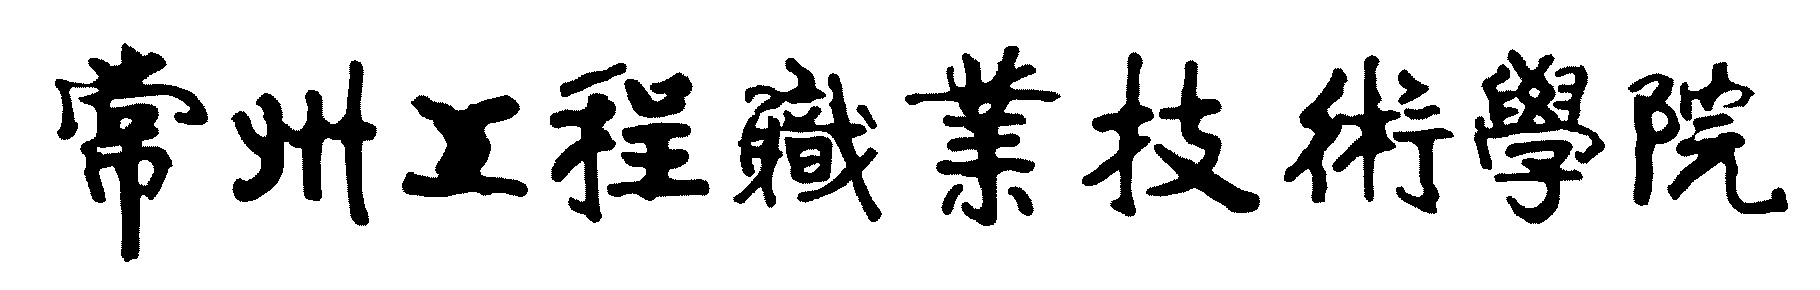 常州工程職業技術學院